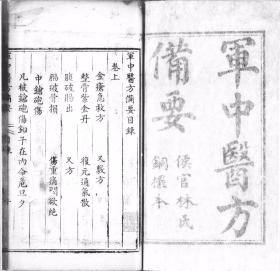 軍中醫方
備要
侯官林氏
銅擺本
軍中醫方備要目錄
卷上
金瘡急救方
又敷方
整骨紫金丹
復元通氣散
腹破腸出
又方
腦破骨損
傷重痛悶欲絶
中鎗砲傷
凡被鎗砲傷鉛子在內命危旦夕